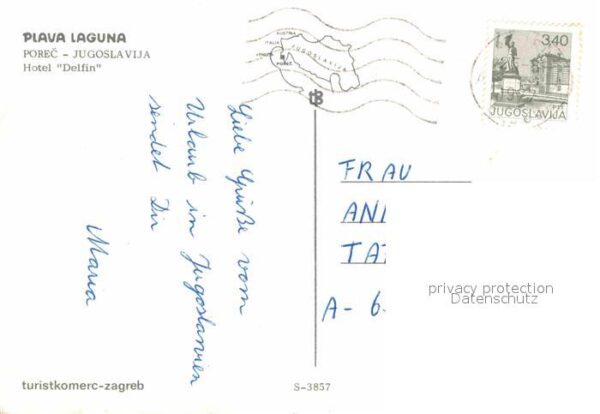 PLAVA LAGUNA
POREČ – JUGOSLAVIJA
Hotel "Delfin"
AUSTRIA
ITALIA
JUGOSLAVIJA
POREČ
3,40
JUGOSLAVIJA
Liebe Grüße vom
Urlaub in Jugoslawien
sendet Dir
Maria
FRAU
ANI
TA
A - 6
privacy protection
Datenschutz
turistkomerc-zagreb
S-3857